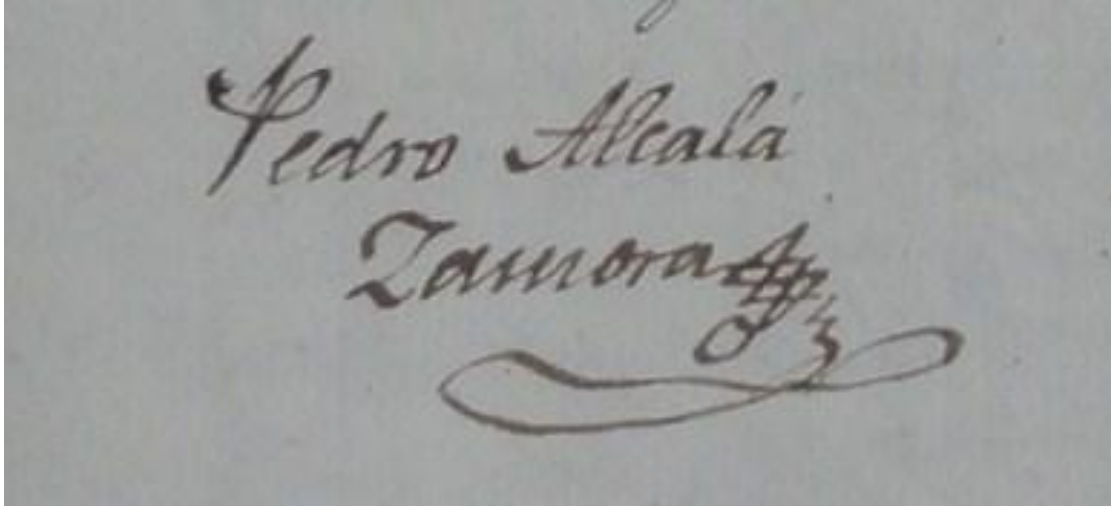 Pedro Alcalá
Zamora